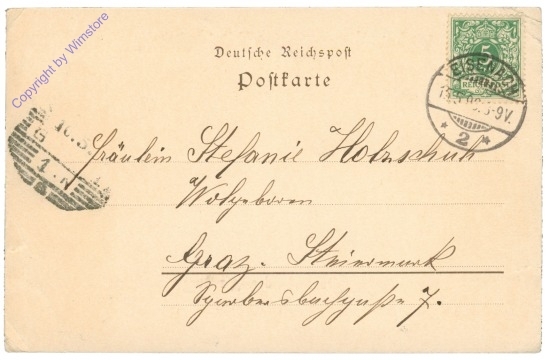 Copyright by Wimstore
Deutsche Reichspost
Postkarte
5
REICHSPOST
EISENACH
8-9V.
* 2 *
1. N
Fräulein Stefanie Holzschuh
Wolgeboren
Graz. Steiermark
Sparbersbachgaße 7.